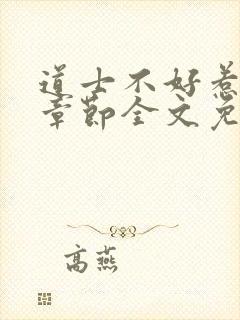 道士不好惹
章节全文免
高燕